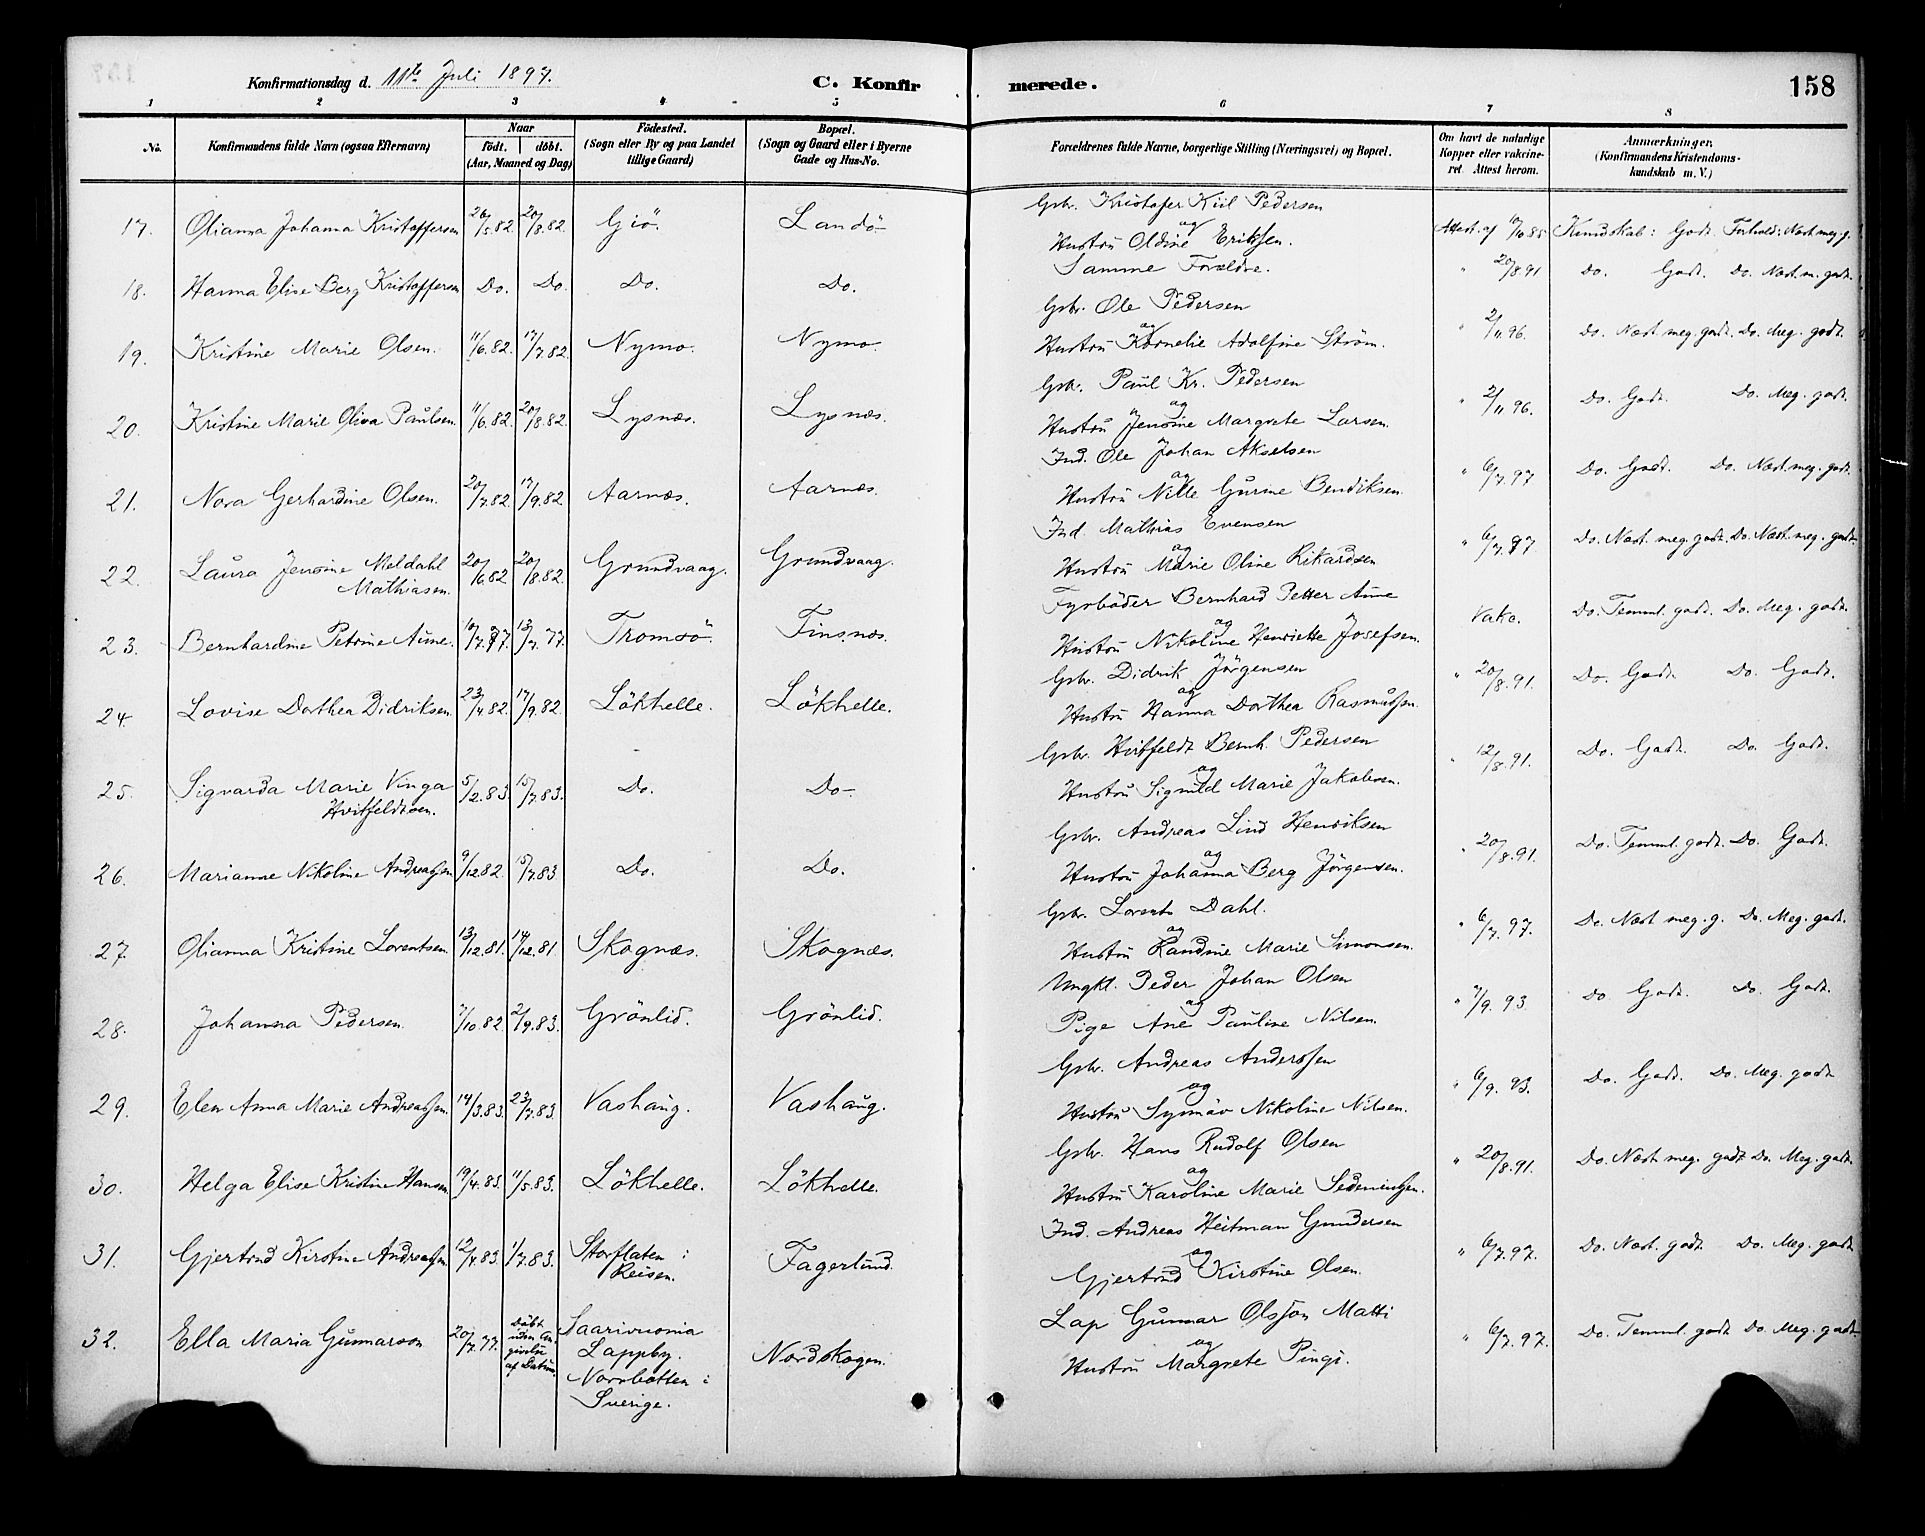 Konfirmationsdag d. 11te Juli 1897.
C. Konfirmerede.
158
1 2 3 4 5 6 7 8
No.
Konfirmandens fulde Navn (ogsaa Efternavn)
Naar
født. døbt.
(Aar, Maaned og Dag)
Fødested.
(Sogn eller By og paa Landet tillige Gaard)
Bopæl.
(Sogn og Gaard eller i Byerne Gade og Hus-No.
Forældrenes fulde Navne, borgerlige Stilling (Næringsvei) og Bopæl.
Om havt de naturlige Kopper eller vakcineret. Attest herom.
Anmærkninger.
(Konfirmandens Kristendomskundskab m. V.)
17. Olianna Johanna Kristoffersen 26/5.82. 20/8.82. Giö. Landö Gbr. Kristofer Kiil Pedersen og Hustrü Oldine Eriksen. Attest af 10/10.85 Kundskab: Godt. Forhold: Næst meg. g.
18. Hanna Elise Berg Kristoffersen Do. Do. Do. Do. Samme Forældre. " 20/8.91 Do. Godt. Do. Næst m. godt.
19. Kristine Marie Olsen. 11/6.82. 17/7.82. Nymo. Nymo. Gbr. Ole Pedersen og Hustrü Kornelie Adolfine Ström. " 2/11 96. Do. Næst meg. godt. Do. Meg. godt.
20. Kristine Marie Oliva Paülsen. 11/6.82. 20/8.82. Lysnæs. Lysnæs. Gbr. Paül Kr. Pedersen og Hustrü Jensine Margrete Larsen. " 2/11 96. Do. Godt. Do. Meg. godt.
21. Nora Gerhardine Olsen. 20/7.82. 17/9.82. Aarnæs. Aarnæs. Ind. Ole Johan Akselsen og Hustrü Nille Gürine Bendiksen. " 6/7.97 Do. Godt. Do. Næst meg. godt.
22. Laüra Jensine Meldahl Mathiasen. 20/6.82 20/8.82. Grundvaag. Grundvaag. Ind. Mathias Evensen og Hustrü Marie Oline Rikardsen " 6/7.97 Do. Næst. meg. godt. Do. Næst. meg. godt.
23. Bernhardine Petrine Aüne. 10/7.77. 13/7.77. Tromsö. Finsnæs. Fyrböder Bernhard Petter Aüne og Hustrü Nikoline Henriette Josefsen. Vakc. Do. Temml. godt. Do. Meg. godt.
24. Lovise Dorthea Didriksen. 23/4.82. 17/9.82. Lökhelle. Lökhelle. Gbr. Didrik Jörgensen og Hustrü Hanna Dorthea Rasmüssen. " 20/8.91. Do. Godt. Do. Godt.
25. Sigvarda Marie Vinga Hvitfeldtsen. 5/2.83. 15/7.83. Do. Do. Gbr. Hvitfeldt Bernh. Pedersen og Hustrü Signild Marie Jakobsen. " 12/8.91. Do. Godt. Do. Godt.
26. Marianne Nikoline Andreassen 9/12 82. 15/7.83 Do. Do. Gbr. Andreas Lind Henriksen og Hustrü Johanna Berg Jörgensen. " 20/8.91. Do. Temml. godt. Do. Godt.
27. Olianna Kristine Lorentsen. 13/12.81. 14/12.81 Skognæs. Skognæs. Gbr. Lorents Dahl. og Hustrü Randine Marie Simonsen. " 6/7.97. Do. Næst meg. g. Do. Meg. godt.
28. Johanna Pedersen. 7/10.82. 2/9.83. Grönlid. Grönlid. Ungkl. Peder Johan Olsen og Pige Ane Pauline Nilsen. " 7/9.93. Do. Godt. Do. Godt.
29. Elen Anna Marie Andreassen. 14/3.83. 23/7.83. Vashaüg. Vashaüg. Gbr. Andreas Anderssen og Hustrü Synnäv Nikoline Nilsen. " 6/9.93. Do. Godt. Do. Meg. godt
30. Helga Elise Kristine Hansen. 19/4.83. 11/5.83. Lökhelle. Lökhelle. Gbr. Hans Rudolf Olsen og Hustrü Karoline Marie " 20/8.91. Do. Næst meg. godt. Do. Meg. godt.
31. Gjertrud Kirstine Andreassen. 12/4.83. 1/7.83. Storflaten i Reisen. Fagerlund. Ind. Andreas Heitman Gundersen og Gjertrüd Kirstine Olsen. " 6/7.97. Do. Næst. godt. Do. Meg. godt.
32. Ella Maria Günnarson 20/7.77. Döbt uden Angivelse af Datum. Saarivuoma Lappby. Norrbotten i Sverige. Nordskogen. Lap Günnar Olsson Matti og Hustrü Margrete Pingi. " 6/7.97. Do. Temml. godt Do. Meg. godt